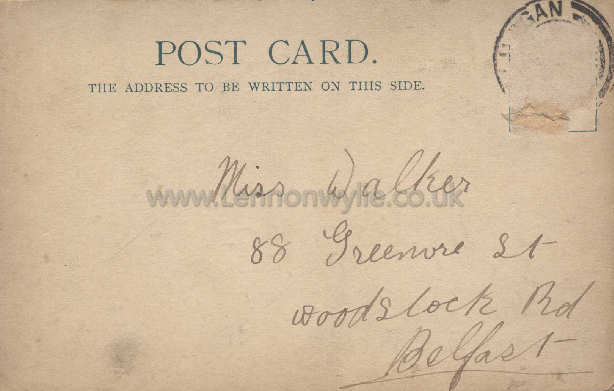 LURGAN
POST CARD.
THE ADDRESS TO BE WRITTEN ON THIS SIDE.
Miss Walker
www.Lennonwylie.co.uk
88 Greenore St
Woodstock Rd
Belfast